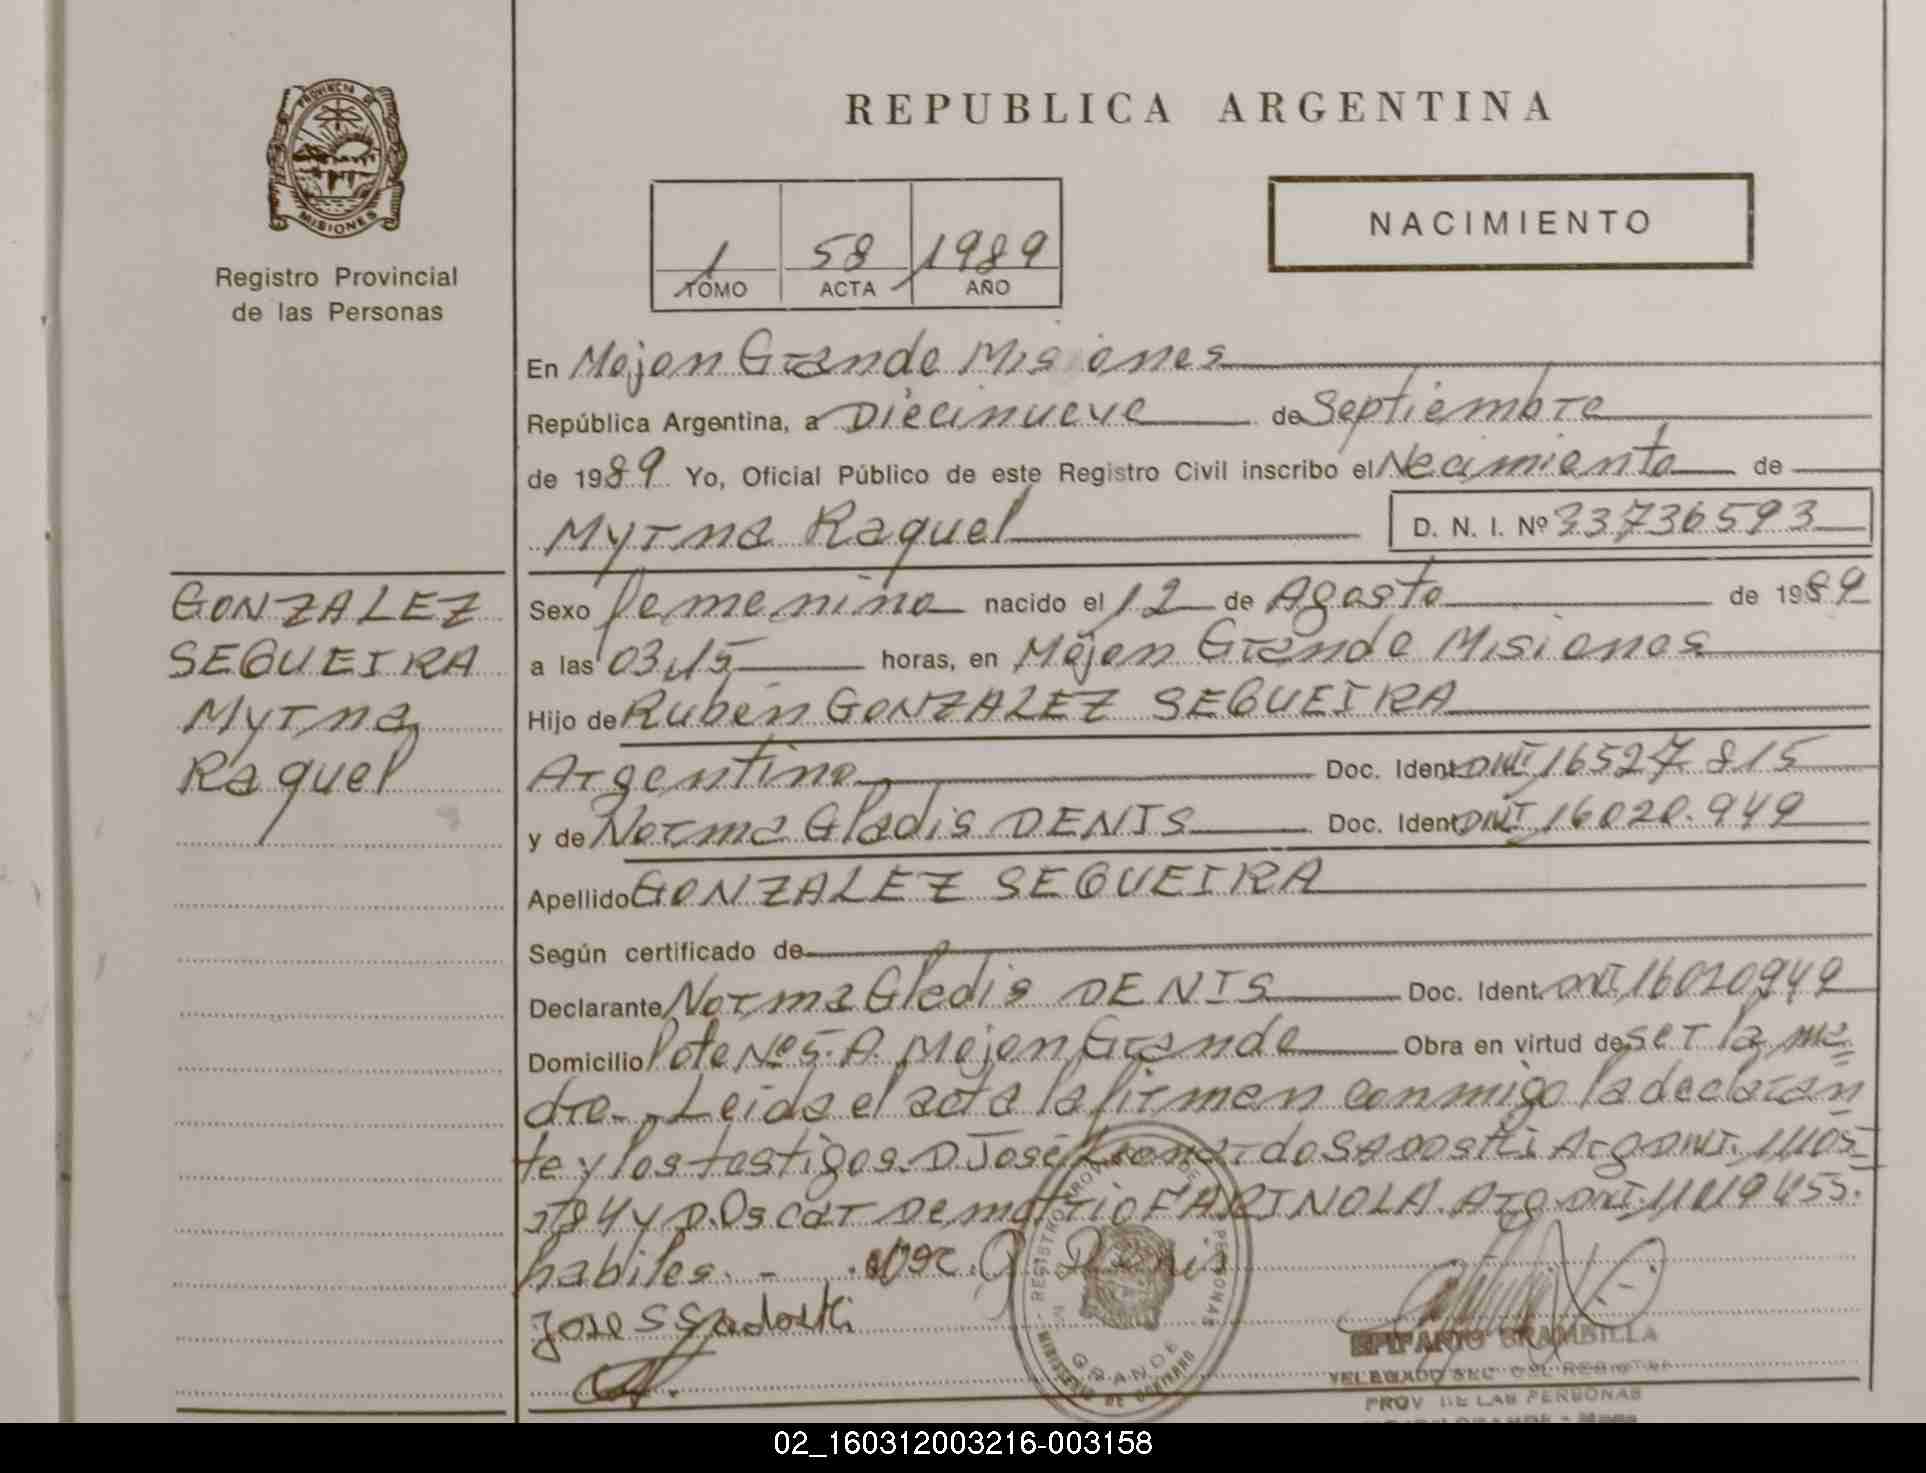 PROVINCIA DE
MISIONES
Registro Provincial
de las Personas
REPUBLICA ARGENTINA
NACIMIENTO
1 58 1989
TOMO ACTA AÑO
En Mojon Grande Misiones
República Argentina, a Diecinueve de Septiembre
de 1989 Yo, Oficial Público de este Registro Civil inscribo el Necimiento de
Myrna Raquel D. N. I. Nº 33736593
GONZALEZ
SEQUEIRA
Myrna
Raquel
Sexo femenino nacido el 12 de Agosto de 1989
a las 03,15 horas, en Mojon Grande Misiones
Hijo de Rubén GONZALEZ SEQUEIRA
Argentino Doc. Ident. DNI 16527.815
y de Norma Gladis DENIS Doc. Ident. DNI 16020.949
Apellido GONZALEZ SEQUEIRA
Según certificado de
Declarante Norma Gladis DENIS Doc. Ident. DNI 16020949
Domicilio lote Nº 5. A. Mojon Grande Obra en virtud de ser la ma
dre. Leida el acta la firman conmigo la declaran
te y los testigos. D José Arg DNI.
y D. Oscar Demetrio FARINOLA. Arg. DNI. 11019455.
habiles. -
Jose S
REGISTRO PERSONAS
GRANDE
MINISTERIO DE GOBIERNO
EPIFANIO BRAMBILLA
PROV DE LAS PERSONAS
02_160312003216-003158